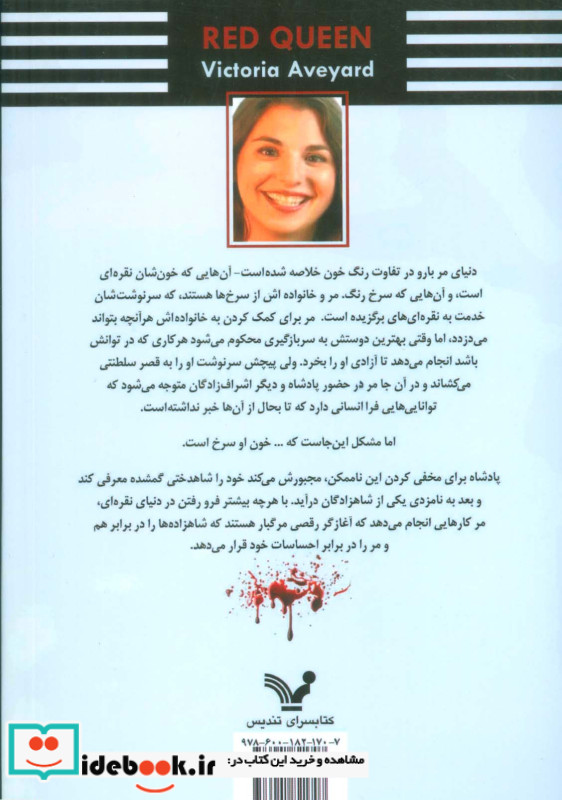 RED QUEEN
Victoria Aveyard
دنیای مر بارو در تفاوت رنگ خون خلاصه شده‌است- آن‌هایی که خون‌شان نقره‌ای
است، و آن‌هایی که سرخ رنگ. مر و خانواده اش از سرخ‌ها هستند، که سرنوشت‌شان
خدمت به نقره‌ای‌های برگزیده است. مر برای کمک کردن به خانواده‌اش هرآنچه بتواند
می‌دزدد، اما وقتی بهترین دوستش به سربازگیری محکوم می‌شود هرکاری که در توانش
باشد انجام می‌دهد تا آزادی او را بخرد. ولی پیچش سرنوشت او را به قصر سلطنتی
می‌کشاند و در آن جا مر در حضور پادشاه و دیگر اشراف‌زادگان متوجه می‌شود که
توانایی‌هایی فرا انسانی دارد که تا بحال از آن‌ها خبر نداشته‌است.
اما مشکل این‌جاست که ... خون او سرخ است.
پادشاه برای مخفی کردن این ناممکن، مجبورش می‌کند خود را شاهدختی گمشده معرفی کند
و بعد به نامزدی یکی از شاهزادگان درآید. با هرچه بیشتر فرو رفتن در دنیای نقره‌ای،
مر کارهایی انجام می‌دهد که آغازگر رقصی مرگبار هستند که شاهزاده‌ها را در برابر هم
و مر را در برابر احساسات خود قرار می‌دهد.
کتابسرای تندیس
۹۷۸-۶۰۰-۱۸۲-۱۷۰-۷
مشاهده و خرید این کتاب در:
idebook.ir